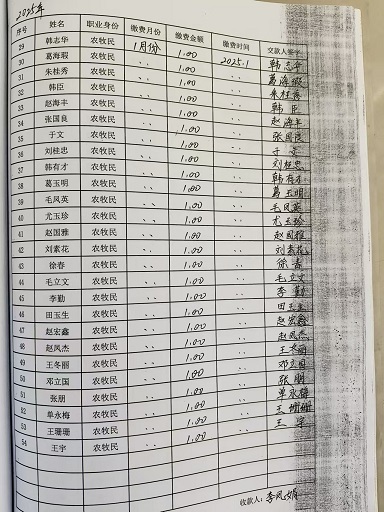 2025年
序号 姓名 职业身份 缴费月份 缴费金额 缴费时间 交款人签字
29 韩志华 农牧民 1月份 1.00 2025.1 韩志华
30 葛海娥 农牧民 〃 1.00 〃
31 朱桂秀 农牧民 〃 1.00 〃 朱桂秀
32 韩臣 农牧民 〃 1.00 〃 韩臣
33 赵海丰 农牧民 〃 1.00 〃 赵海丰
34 张国良 农牧民 〃 1.00 〃 张国良
35 于文 农牧民 〃 1.00 〃 于文
36 刘桂忠 农牧民 〃 1.00 〃 刘桂忠
37 韩有才 农牧民 〃 1.00 〃 韩有才
38 葛玉明 农牧民 〃 1.00 〃 葛玉明
39 毛凤英 农牧民 〃 1.00 〃 毛凤英
40 尤玉珍 农牧民 〃 1.00 〃 尤玉珍
41 赵国雅 农牧民 〃 1.00 〃 赵国雅
42 刘素花 农牧民 〃 1.00 〃 刘素花
43 徐春 农牧民 〃 1.00 〃 徐春
44 毛立文 农牧民 〃 1.00 〃 毛立文
45 李勤 农牧民 〃 1.00 〃 李勤
46 田玉生 农牧民 〃 1.00 〃 田玉生
47 赵宏鑫 农牧民 〃 1.00 〃 赵宏鑫
48 赵凤杰 农牧民 〃 1.00 〃 赵凤杰
49 王冬丽 农牧民 〃 1.00 〃 王冬丽
50 邓立国 农牧民 〃 1.00 〃 邓立国
51 张朋 农牧民 〃 1.00 〃 张朋
52 单永梅 农牧民 〃 1.00 〃 单永梅
53 王珊珊 农牧民 〃 1.00 〃 王珊珊
54 王宇 农牧民 〃 1.00 〃 王宇
收款人：李凤娟